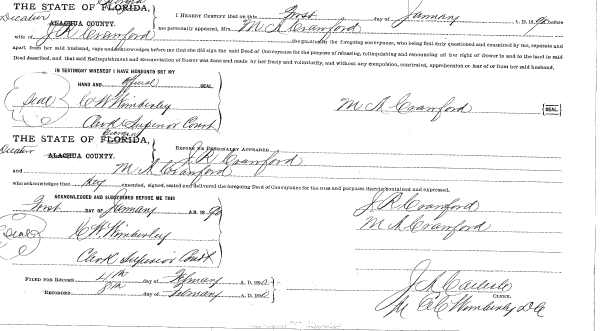 Georgia
THE STATE OF FLORIDA,
Decatur ALACHUA COUNTY.
I HEREBY CERTIFY that on this First day of January A. D. 1890 before
me personally appeared, Mrs. M A Crawford
wife of J R Crawford the grantor in the foregoing conveyance, who being first duly questioned and examined by me, separate and
apart from her said husband, says and acknowledges before me that she did sign the said Deed of Conveyance for the purpose of releasing, relinquishing and renouncing all her right of Dower in and to the land in said
Deed described, and that said Relinquishment and Renunciation of Dower was done and made by her freely and voluntarily, and without any compulsion, constraint, apprehension or fear of or from her said husband.
IN TESTIMONY WHEREOF I HAVE HEREUNTO SET MY
HAND AND official SEAL,
Seal
C W Wimberley
Clerk Superior Court
M A Crawford SEAL.
Georgia
THE STATE OF FLORIDA,
Decatur ALACHUA COUNTY.
BEFORE ME PERSONALLY APPEARED J R Crawford
and M A Crawford
who acknowledges that they executed, signed, sealed and delivered the foregoing Deed of Conveyance for the uses and purposes therein contained and expressed.
ACKNOWLEDGED AND SUBSCRIBED BEFORE ME THIS
First DAY OF January A.D. 1890
J R Crawford
M A Crawford
Seal
C W Wimberley
Clerk Superior Court
FILED FOR RECORD 4th day of February A. D. 1890
RECORDED 8th day of February A. D. 1890
J A Carlisle
CLERK.
Wimberley D C